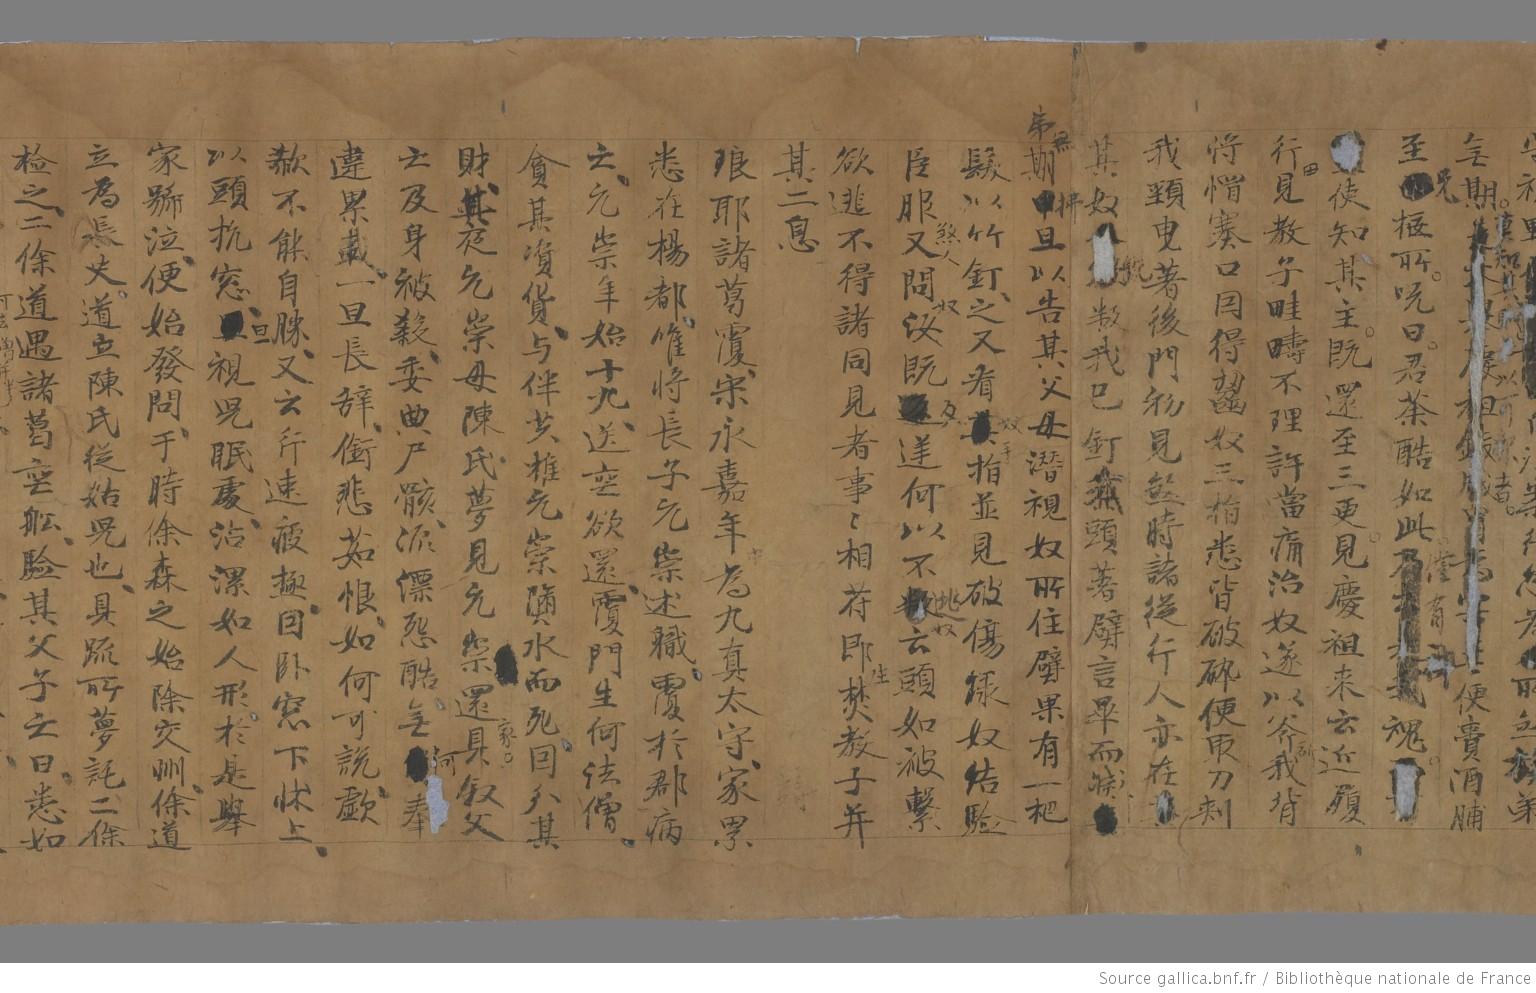 无期
至柩所呪曰君荼酷如此
使知其主既還至三更見慶祖来云近履
行見教子畦疇不理許當痛治奴遂以斧我背
将㡌塞口因得齧奴三指悉皆破碎便取刀刾
我頸曳著後門初見煞時諸從行人亦在
其奴欲叛我已釘其頭著壁言畢而滅
无期旦以告其父母潜視奴所住壁果有一把
髮以竹釘之又看其指並見破傷録奴詰驗
臣服又問汝既反逆何以不叛云頭如被繋
欲逃不得諸同見者事〻相符即焚教子并
其二息
琅耶諸葛覆宋永嘉年為九真太守家累
悉在楊都唯将長子元崇述職覆於郡病
亡元崇年始十九送喪欲還覆門生何法僧
貪其資貨与伴共推元崇墮水而死因分其
財其夜元崇母陳氏夢見元崇還具叙父
亡及身被殺委曲尸骸流漂怨酷无奉
違累載一旦長辞銜悲茹恨如何可說歔
欷不能自勝又云行速疲極因卧窓下牀上
以頭枕窓旦視児眠處沾濕如人形於是舉
家號泣便始發問于時徐森之始除交州徐道
立為長史道立陳氏從姑児也具疏所夢託二徐
检之二徐道遇諸葛喪舩驗其父子亡日悉如
Source gallica.bnf.fr / Bibliothèque nationale de France